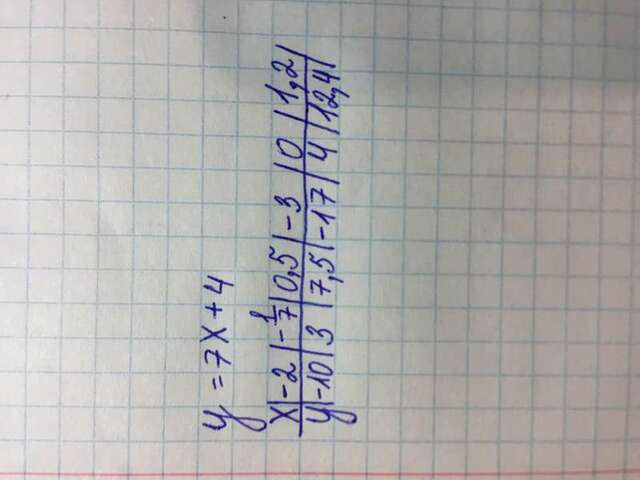 y = 7x + 4
x | -2 | -1/7 | 0,5 | -3 | 0 | 1,2 |
y | -10 | 3 | 7,5 | -17 | 4 | 12,4 |